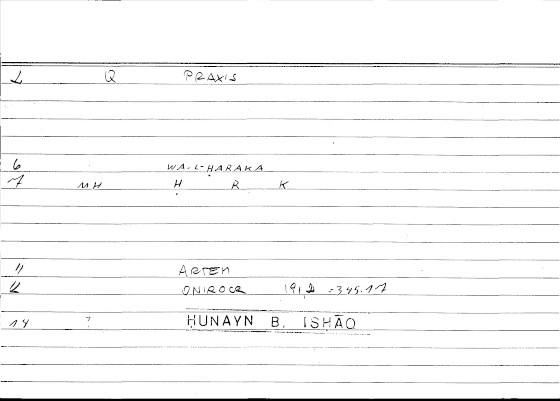 1 Q PRAXIS
6 WA-L-ḤARAKA
7 MH Ḥ R K
11 ARTEM
12 ONIROCR 191,2 = 345.17
14 ? ḤUNAYN B. ISḤĀQ